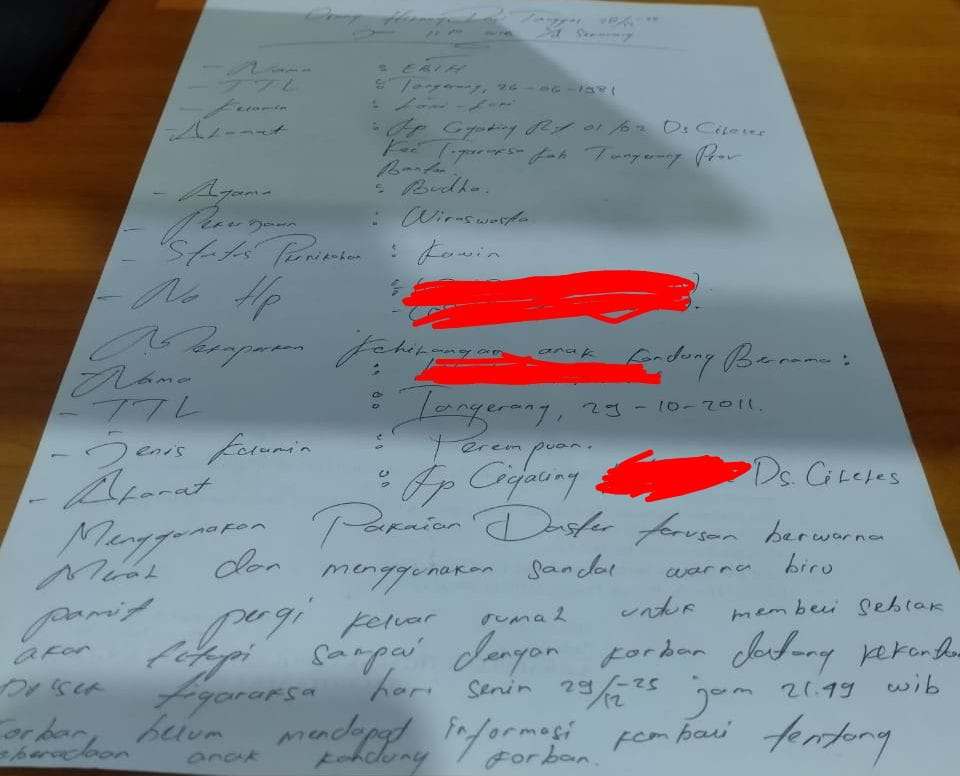 Orang Hilang Dari Tanggal 28/12-25
Jam WIB Sd Sekarang
- Nama :
- TTL : Tangerang, 26-06-1981
- Kelamin : Laki-Laki
- Alamat : Kp Cigaling Rt 01/02 Ds Cileles
Kec Tigaraksa Kab Tangerang Prov
Banten.
- Agama : Budha.
- Pekerjaan : Wiraswasta
- Status Pernikahan : Kawin
- No Hp :
Kehilangan anak Kandung Bernama :
Nama :
- TTL : Tangerang, 29-10-2011.
- Jenis Kelamin : Perempuan.
- Alamat : Kp Cigaling Ds. Cileles
Menggunakan Pakaian Daster terusan berwarna
Merah dan menggunakan sandal warna biru
pamit pergi keluar rumah untuk membeli seblak
akan tetapi sampai dengan korban datang kekantor
Polsek tigaraksa hari senin 29/12-25 jam 21.49 wib
korban belum mendapat informasi kembali tentang
keberadaan anak kandung korban.